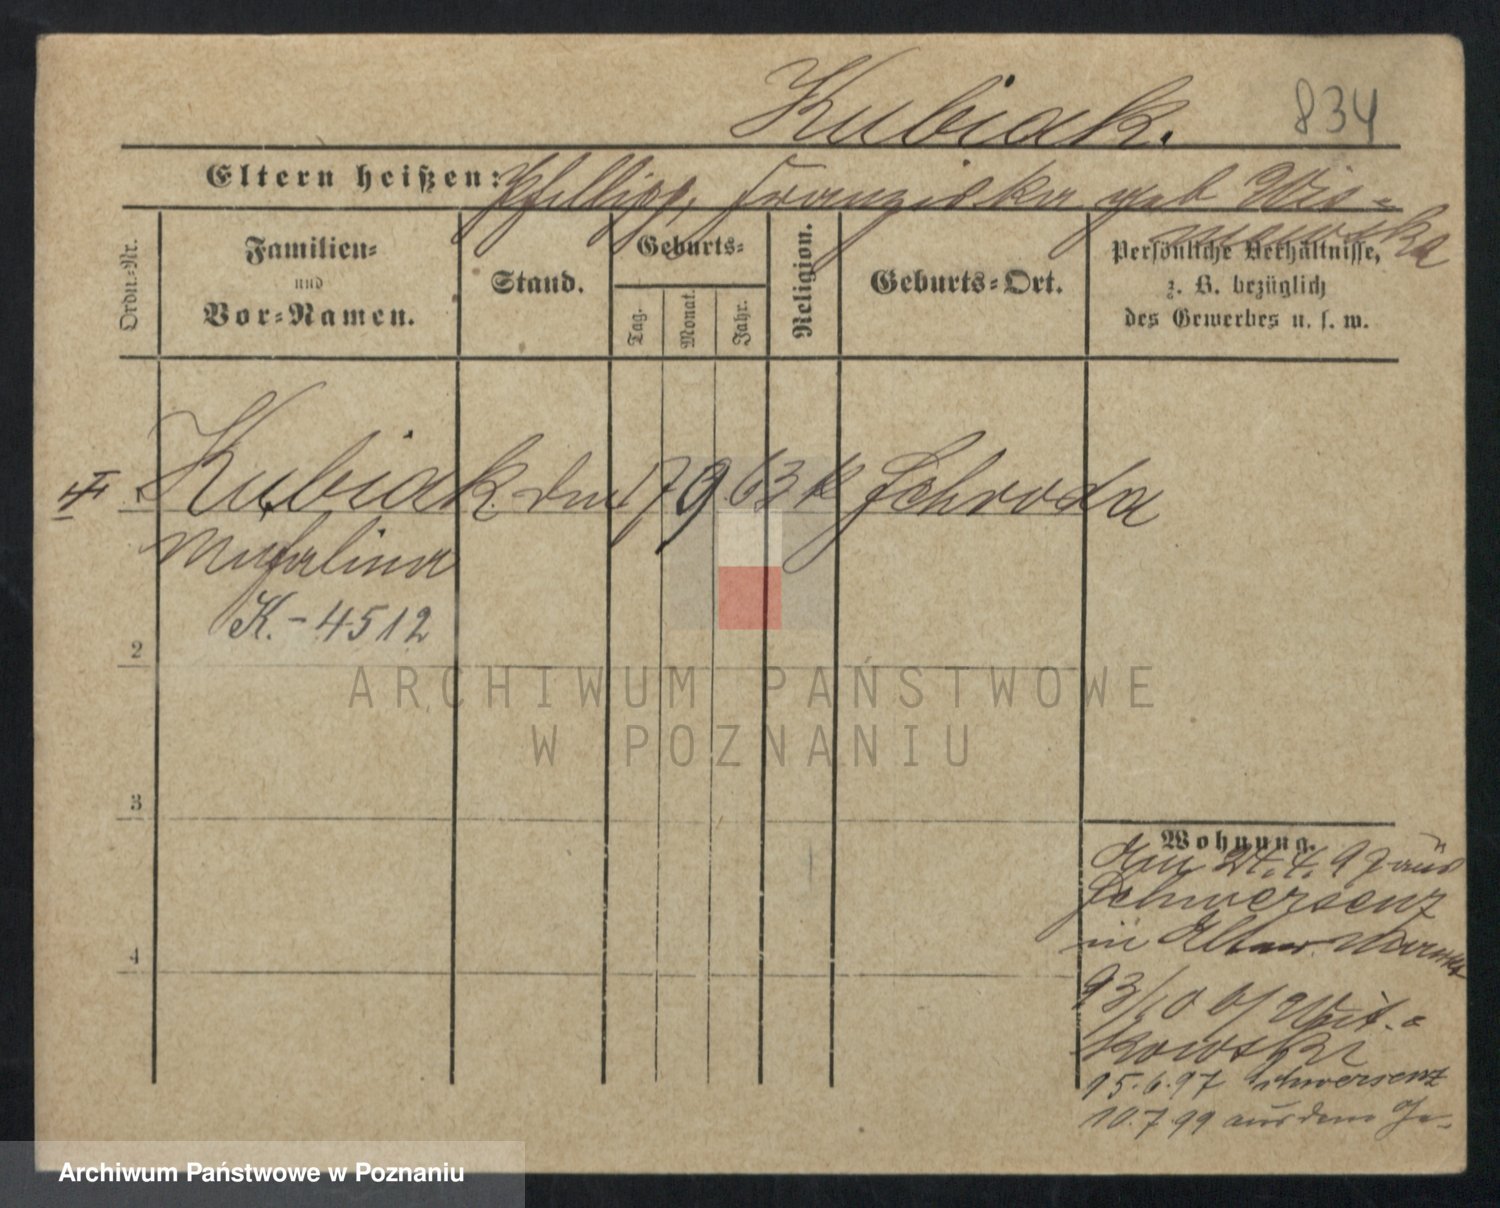 Kubiak.
834
Eltern heißen: Phillipp, Franziska geb Wis=
newska
Ordn.=Nr.
Familien=
und
Vor=Namen.
Stand.
Geburts=
Tag.
Monat.
Jahr.
Religion.
Geburts=Ort.
Persönliche Verhältnisse,
z. B. bezüglich
des Gewerbes u. s. w.
1 Kubiak 17 9 63 k Schroda
K.- 4512
2
3
4
Wohnung.
24.4.97 aus
Schwersenz
in
93/10 b/ Wit.=
kowski
15.6.97 Schwersenz
10.7.99 aus dem Ge=
ARCHIWUM PAŃSTWOWE
W POZNANIU
Archiwum Państwowe w Poznaniu